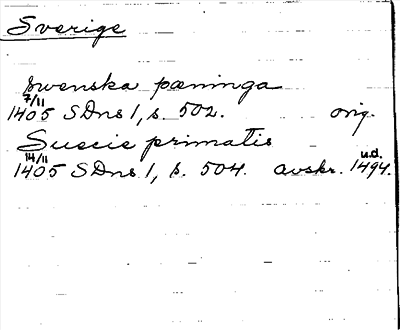 Sverige
swenska pæninga
7/11
1405 SDns 1, s. 502. orig.
Suecie primatis
14/11 u.d.
1405 SDns 1, s. 504. avskr. 1494.